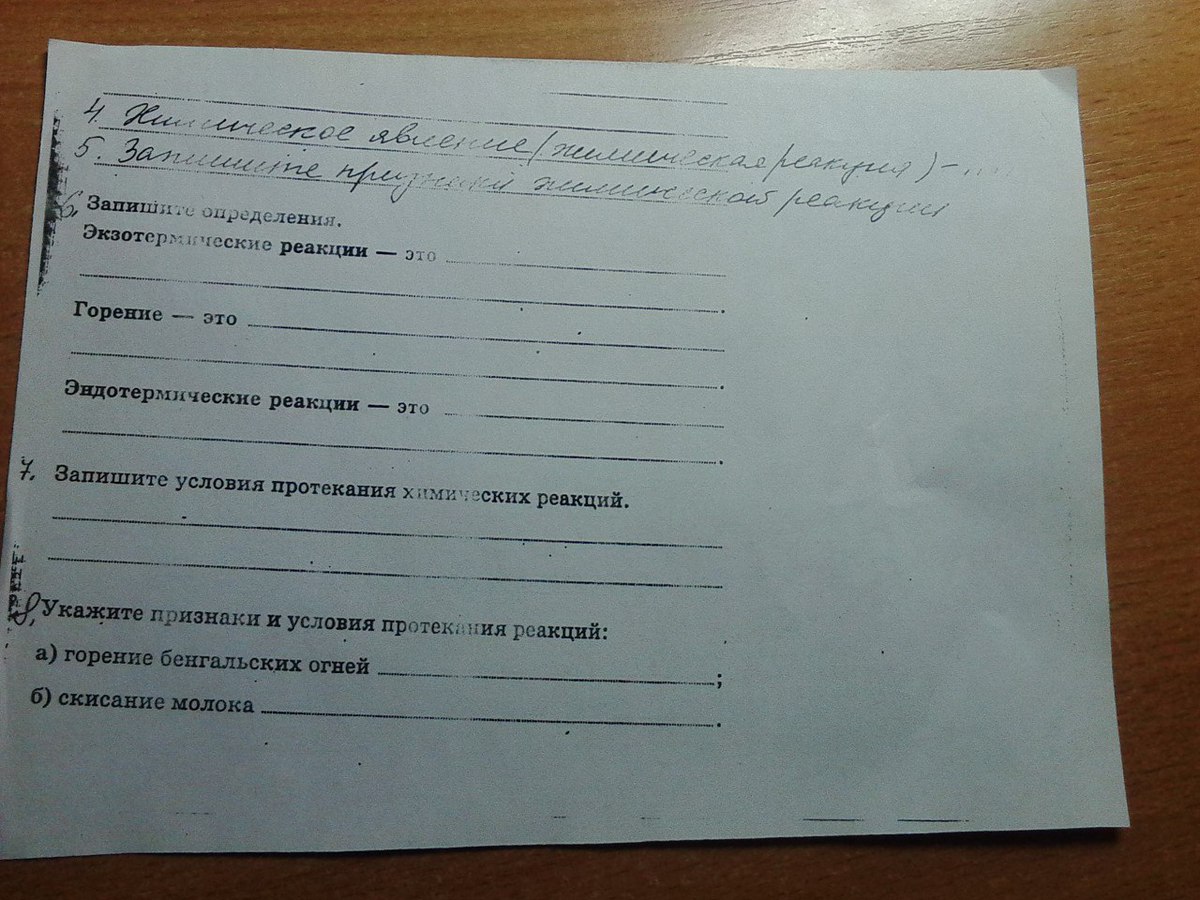 4. Химическое явление (химическая реакция) - ....
5. Запишите признаки химической реакции
6. Запишите определения.
Экзотермические реакции — это
.
Горение — это
.
Эндотермические реакции — это
.
7. Запишите условия протекания химических реакций.
8. Укажите признаки и условия протекания реакций:
а) горение бенгальских огней ;
б) скисание молока .